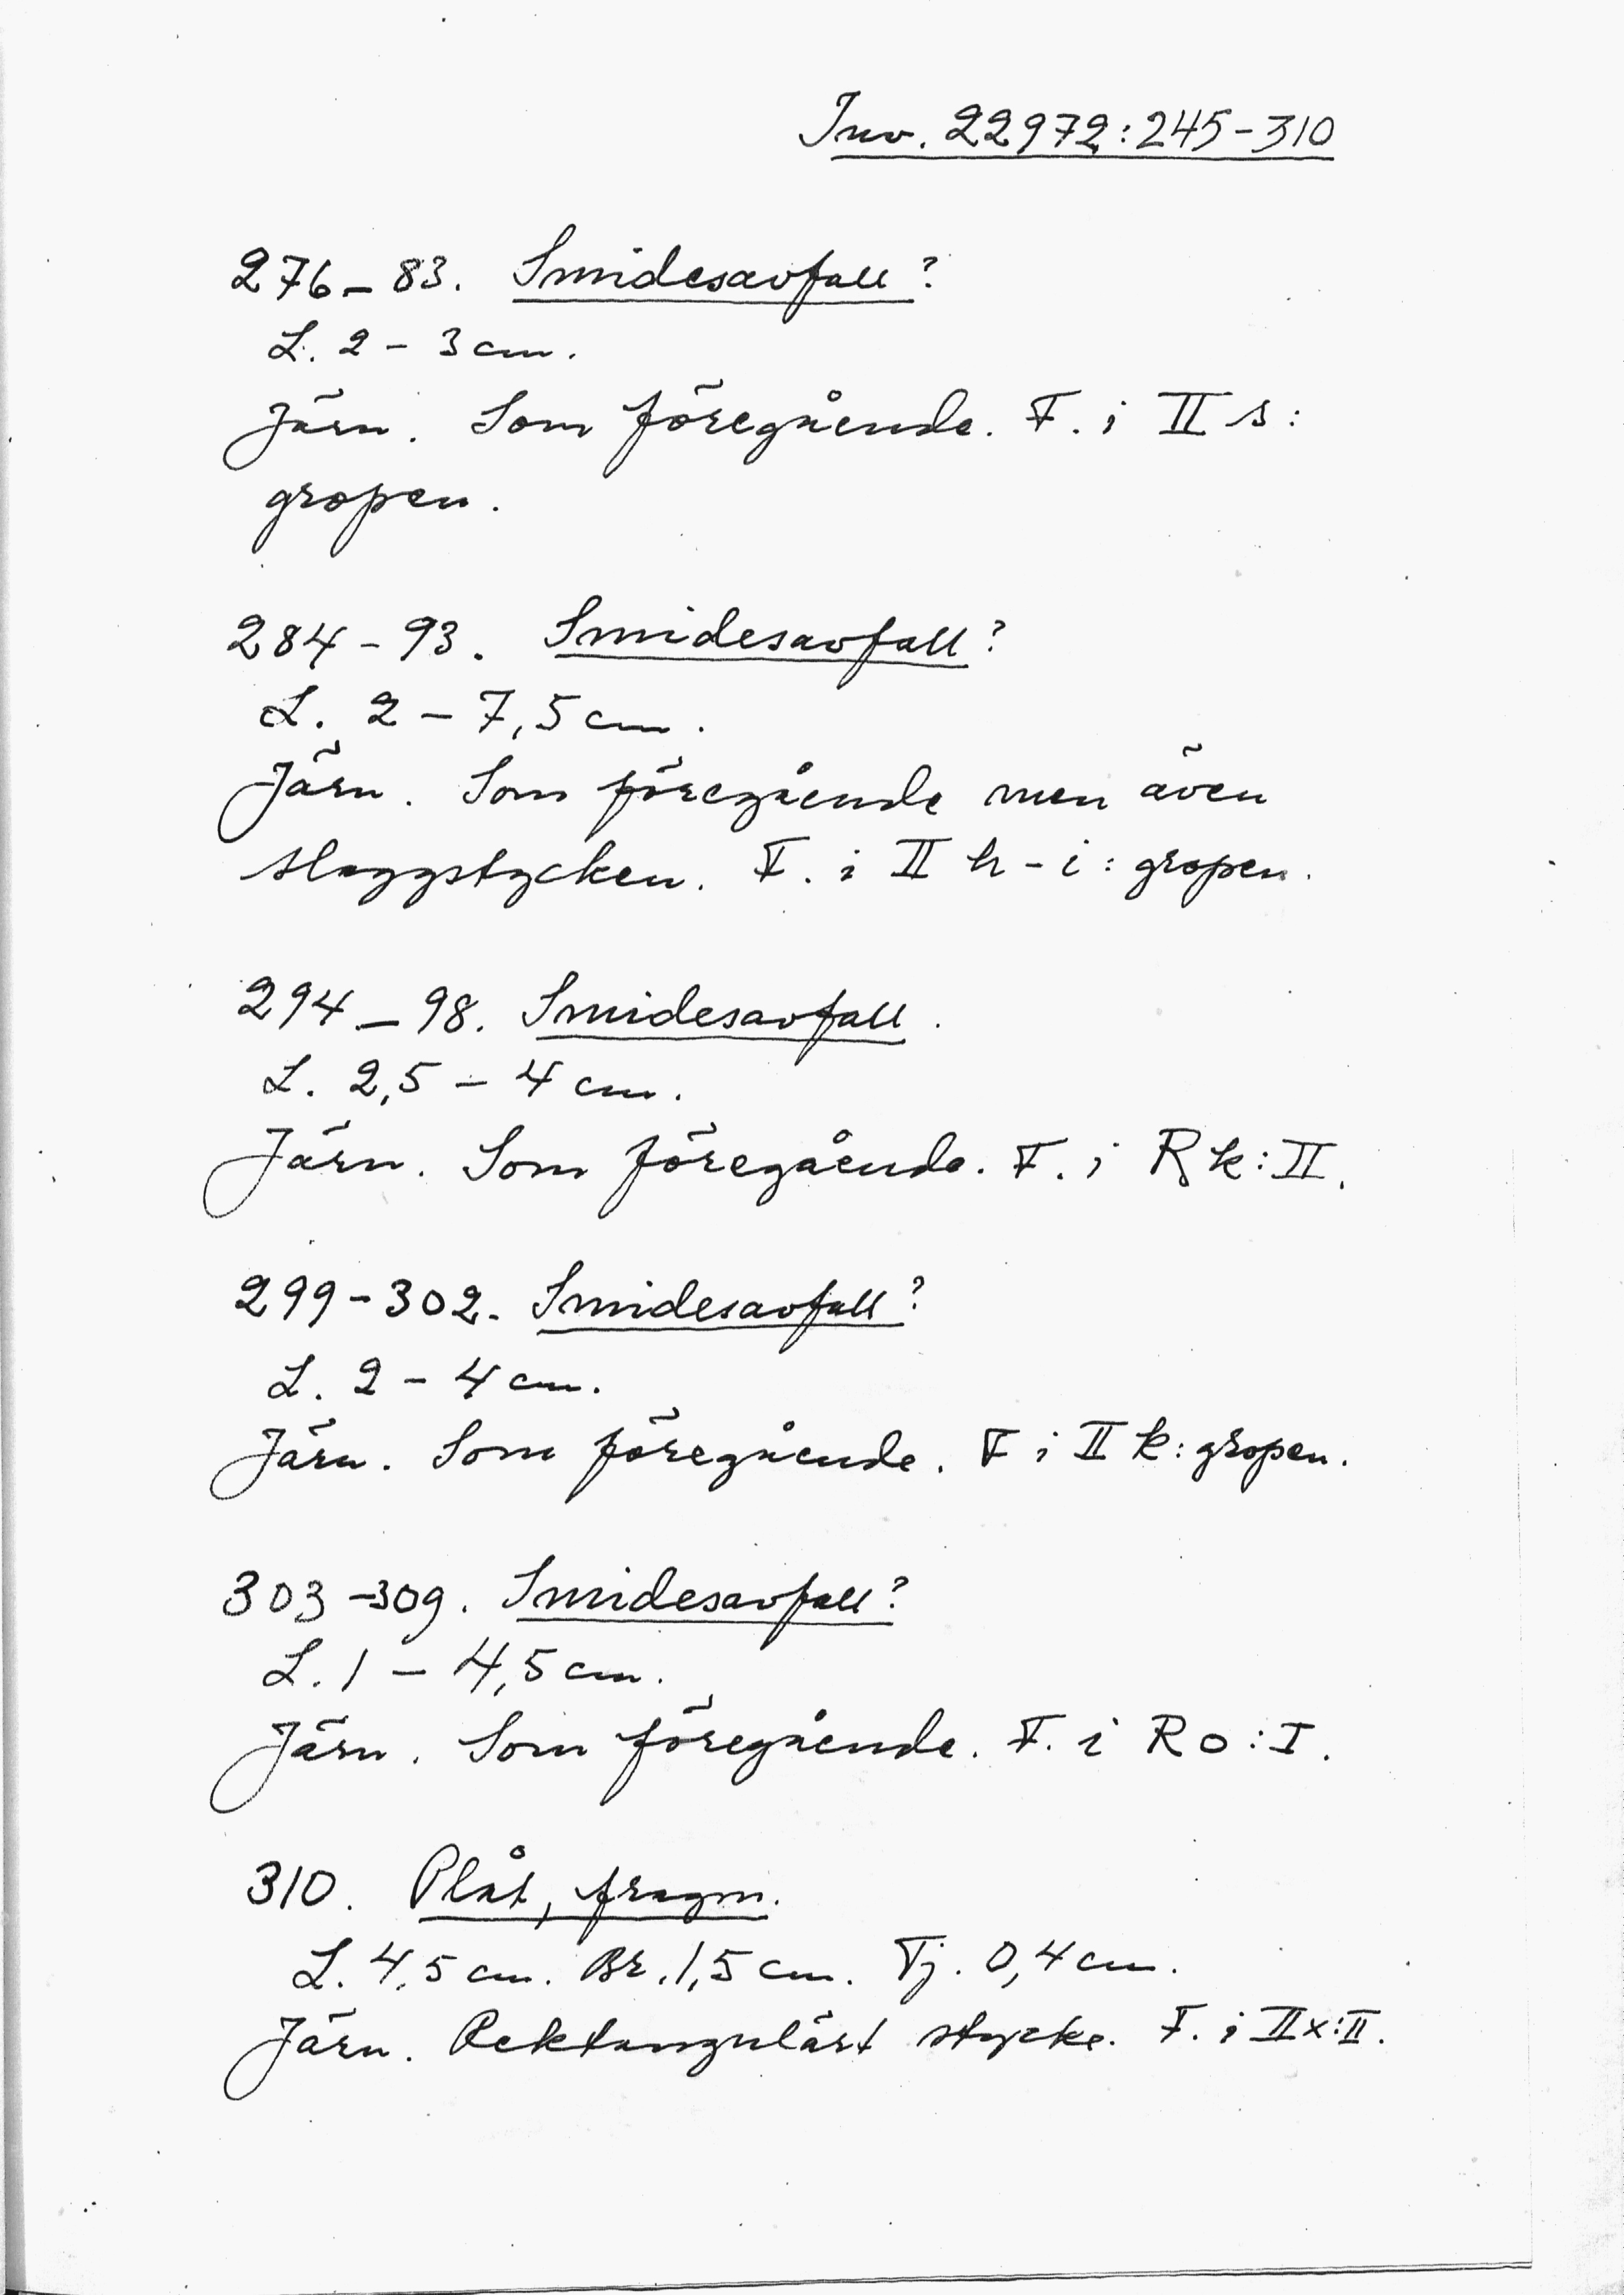 Inv. 22972:245-310
276-83. Smidesavfall?
L. 2 - 3 cm.
Järn. Som föregående. F. i II s:
gropen.
284-93. Smidesavfall?
L. 2 - 7,5 cm.
Järn. Som föregående men även
slaggstycken. F. i II h-i: gropen.
294-98. Smidesavfall.
L. 2,5 - 4 cm.
Järn. Som föregående. F. i R k:II.
299-302. Smidesavfall?
L. 2 - 4 cm.
Järn. Som föregående. F i II k: gropen.
303-309. Smidesavfall?
L. 1 - 4,5 cm.
Järn. Som föregående. F. i R o:I.
310. Plåt, fragm.
L. 4,5 cm. Br. 1,5 cm. Tj. 0,4 cm.
Järn. Rektangulärt stycke. F. i II x:II.